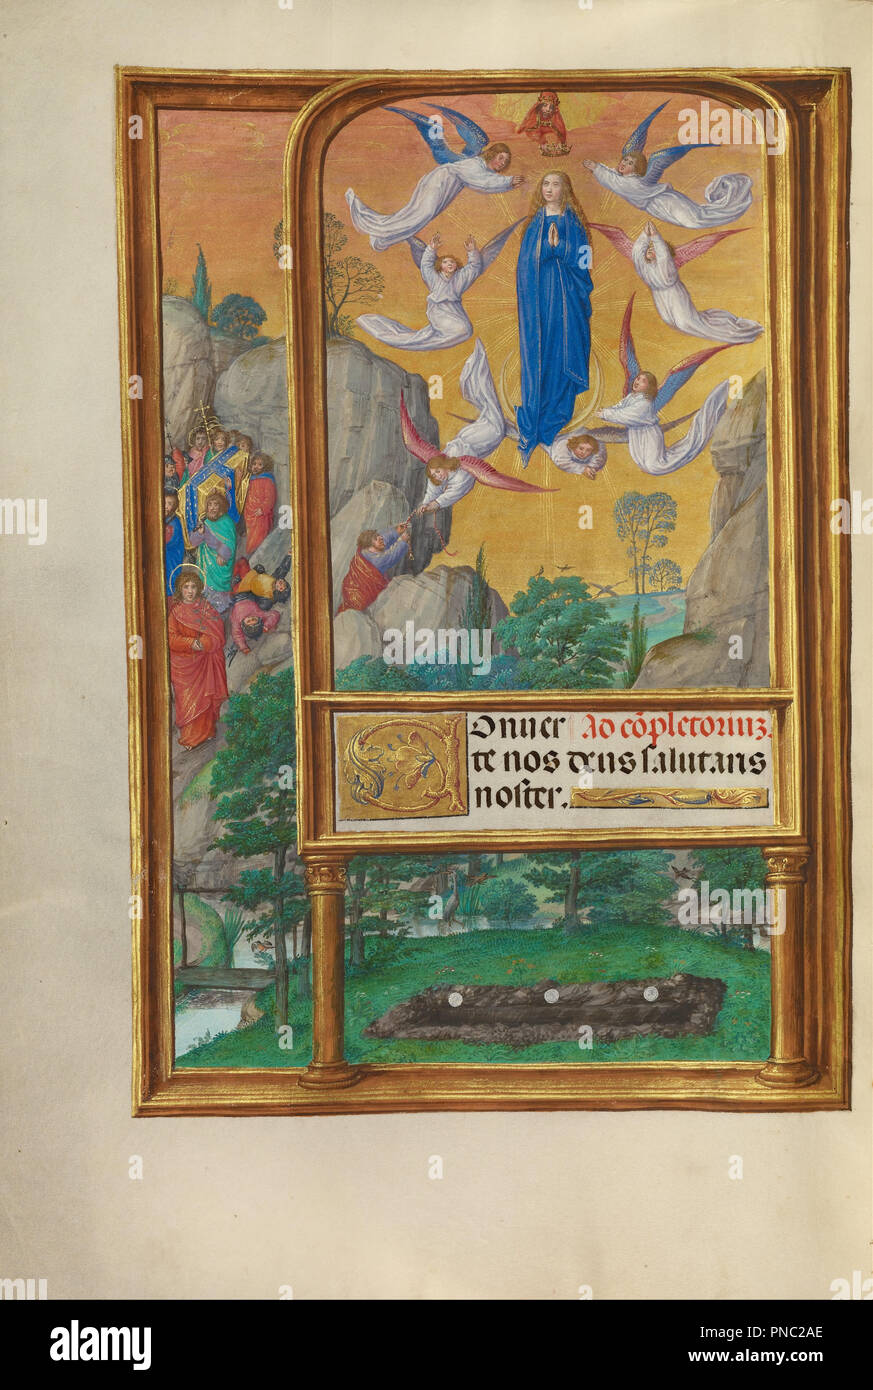 Onuer Ad cõpletoriuz.
te nos deus salutaris
noster.
a alamy stock photo
Image ID: PNC2AE
www.alamy.com